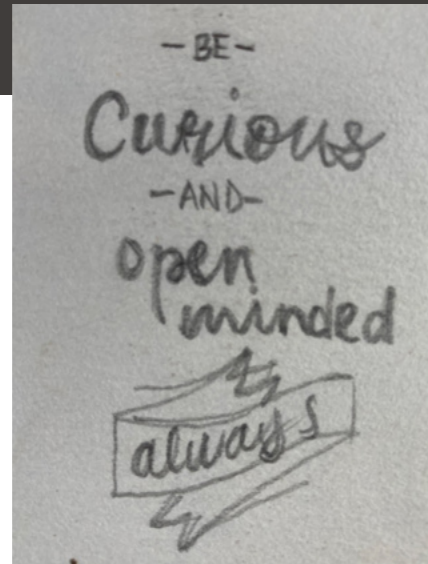 -BE-
Curious
-AND-
open
minded
always